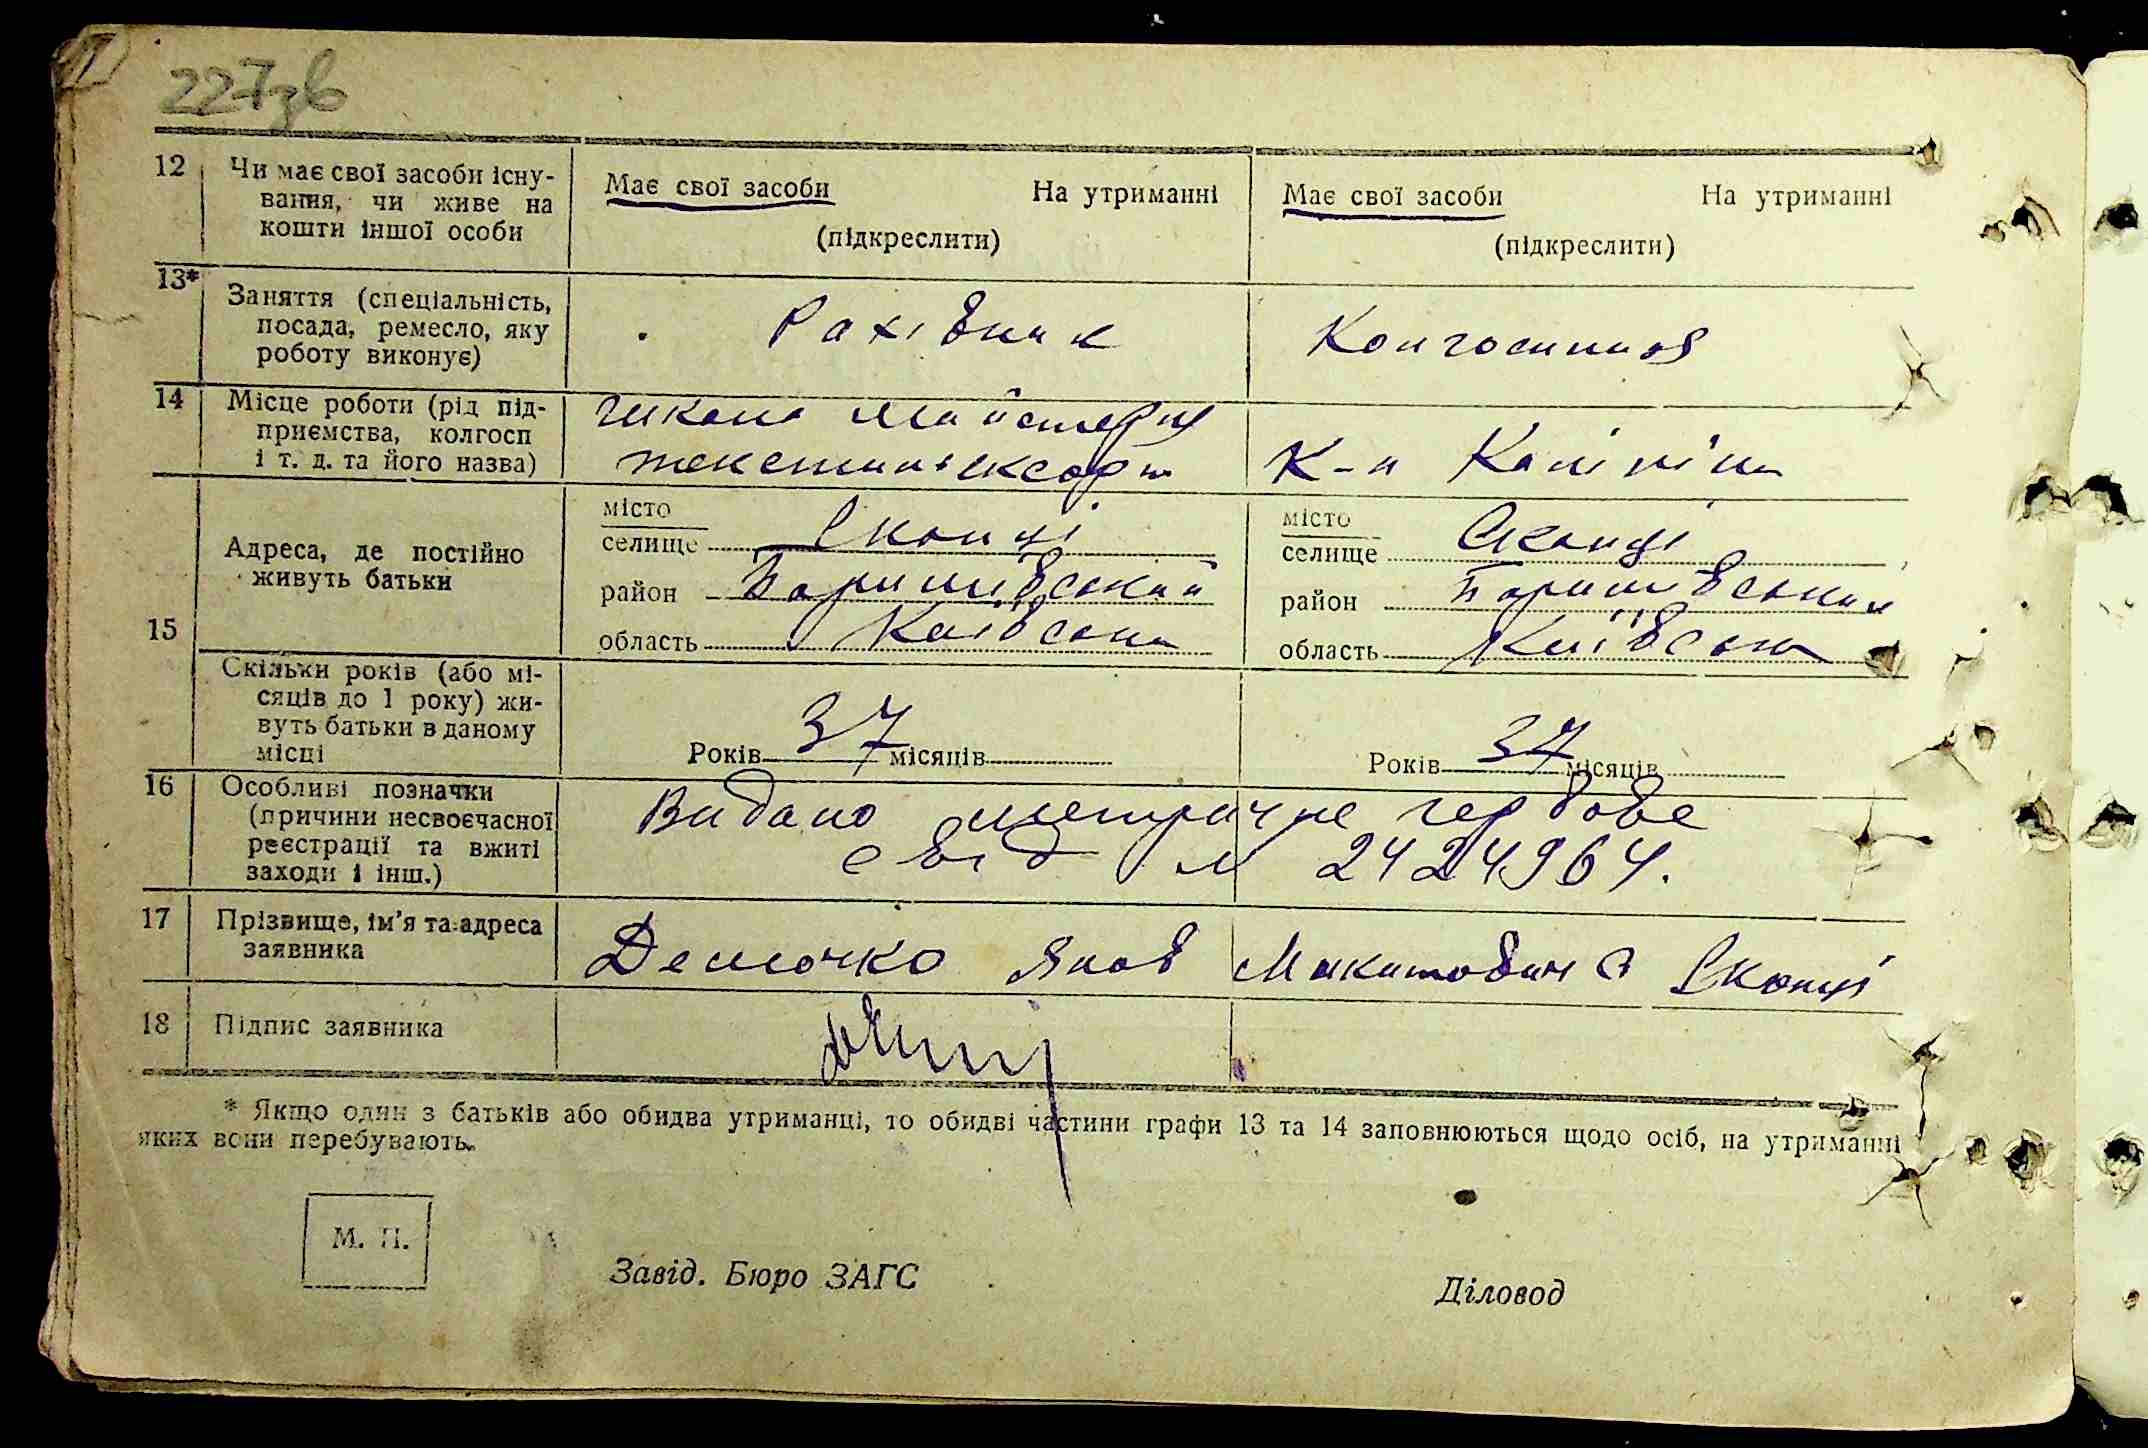 227зв
12 Чи має свої засоби існу-
вання, чи живе на
кошти іншої особи
Має свої засоби На утриманні
(підкреслити)
Має свої засоби На утриманні
(підкреслити)
13* Заняття (спеціальність,
посада, ремесло, яку
роботу виконує)
Рахівник
Колгоспниця
14 Місце роботи (рід під-
приємства, колгосп
і т. д. та його назва)
майстерня
К-п Калініна
15 Адреса, де постійно
живуть батьки
місто
селище Скопці
район Баришівський
область Київська
місто
селище Скопці
район Баришівський
область Київська
Скільки років (або мі-
сяців до 1 року) жи-
вуть батьки в даному
місці
Років 37 місяців
Років 37 місяців
16 Особливі позначки
(причини несвоєчасної
реєстрації та вжиті
заходи і інш.)
Видано метричне гербове
свід № 2424964.
17 Прізвище, ім’я та адреса
заявника
Демочко Яков Микитович с Скопці
18 Підпис заявника
* Якщо один з батьків або обидва утриманці, то обидві частини графи 13 та 14 заповнюються щодо осіб, на утриманні
яких вони перебувають.
М. П.
Завід. Бюро ЗАГС
Діловод